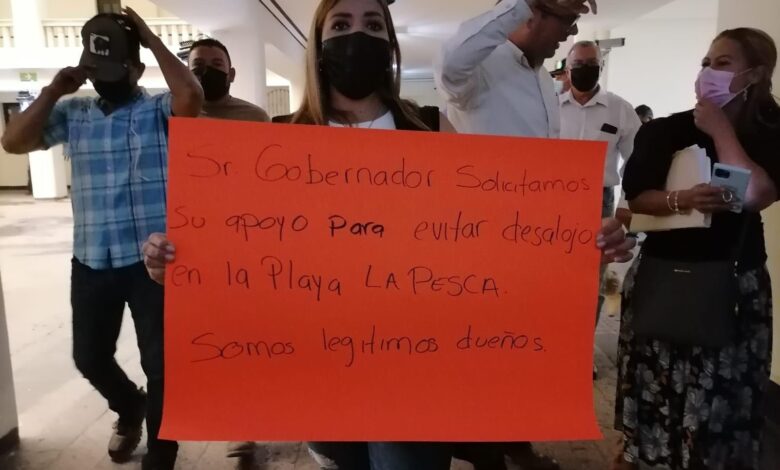 Sr. Gobernador Solicitamos
su apoyo Para evitar desalojo
en la Playa LA PESCA.
Somos legitimos dueños.